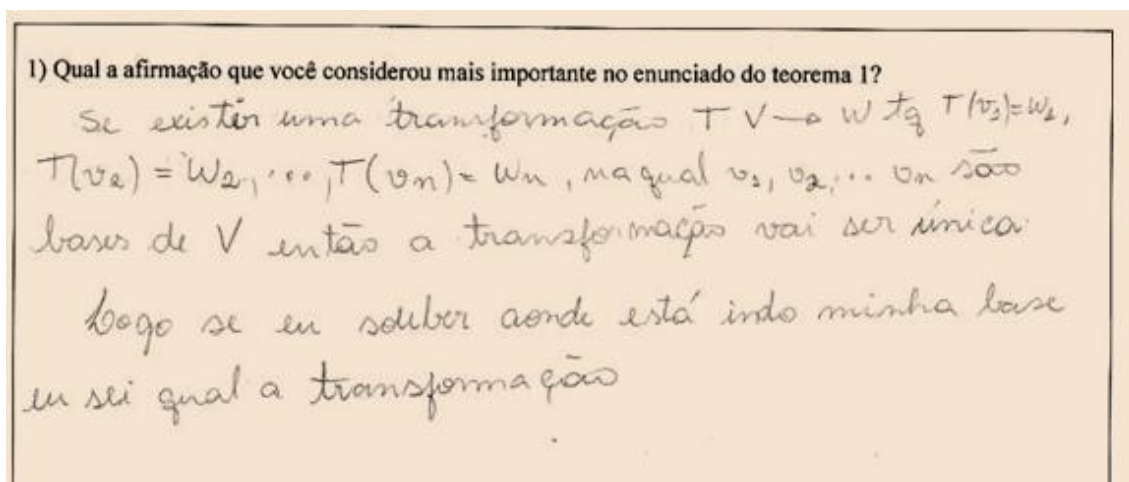 1) Qual a afirmação que você considerou mais importante no enunciado do teorema 1?
Se existir uma transformação T V→ W tq T(v₁)=w₁,
T(v₂) = W₂, ..., T(vn) = Wn, na qual v₁, v₂, ... vn são
bases de V então a transformação vai ser única.
Logo se eu souber aonde está indo minha base
eu sei qual a transformação